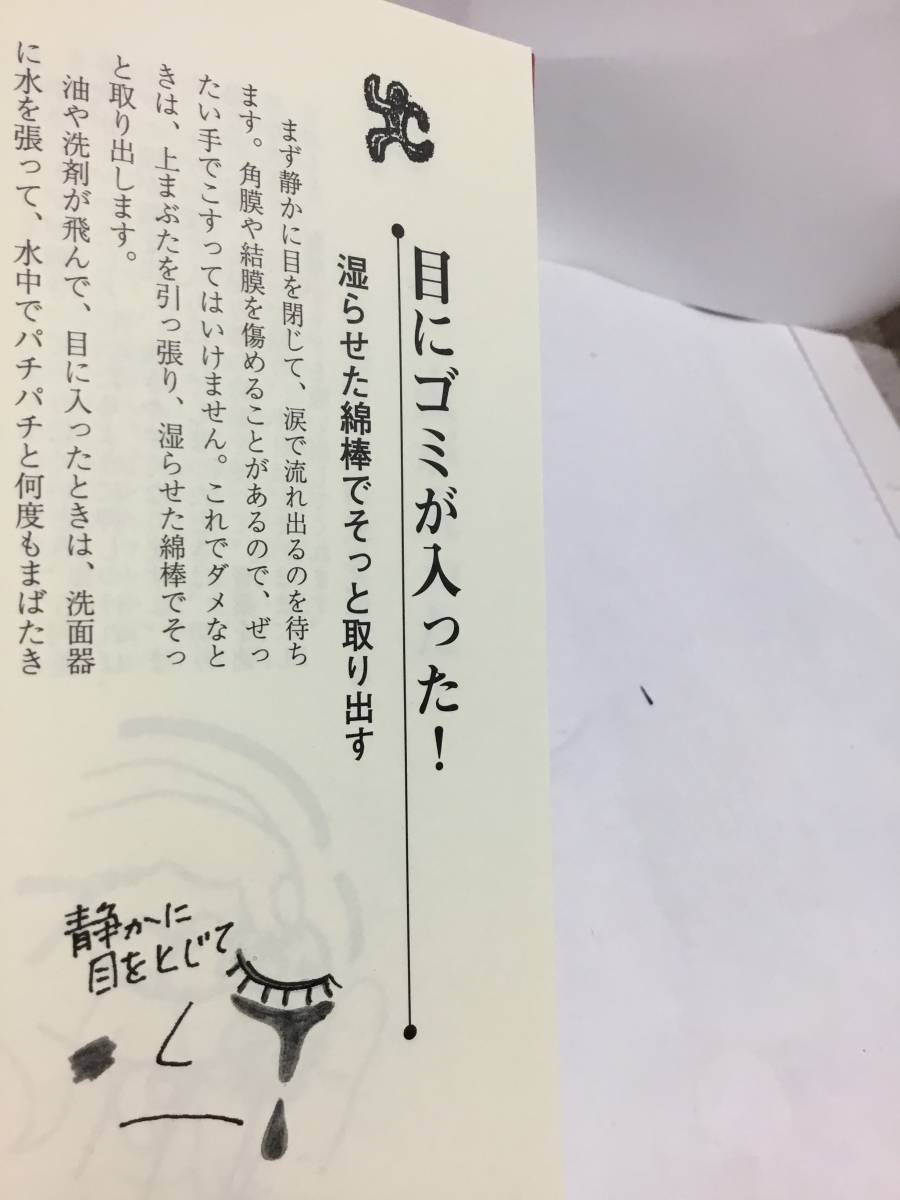 目にゴミが入った！
湿らせた綿棒でそっと取り出す
まず静かに目を閉じて、涙で流れ出るのを待ち
ます。角膜や結膜を傷めることがあるので、ぜっ
たい手でこすってはいけません。これでダメなと
きは、上まぶたを引っ張り、湿らせた綿棒でそっ
と取り出します。
油や洗剤が飛んで、目に入ったときは、洗面器
に水を張って、水中でパチパチと何度もまばたき
静かに
目をとじて